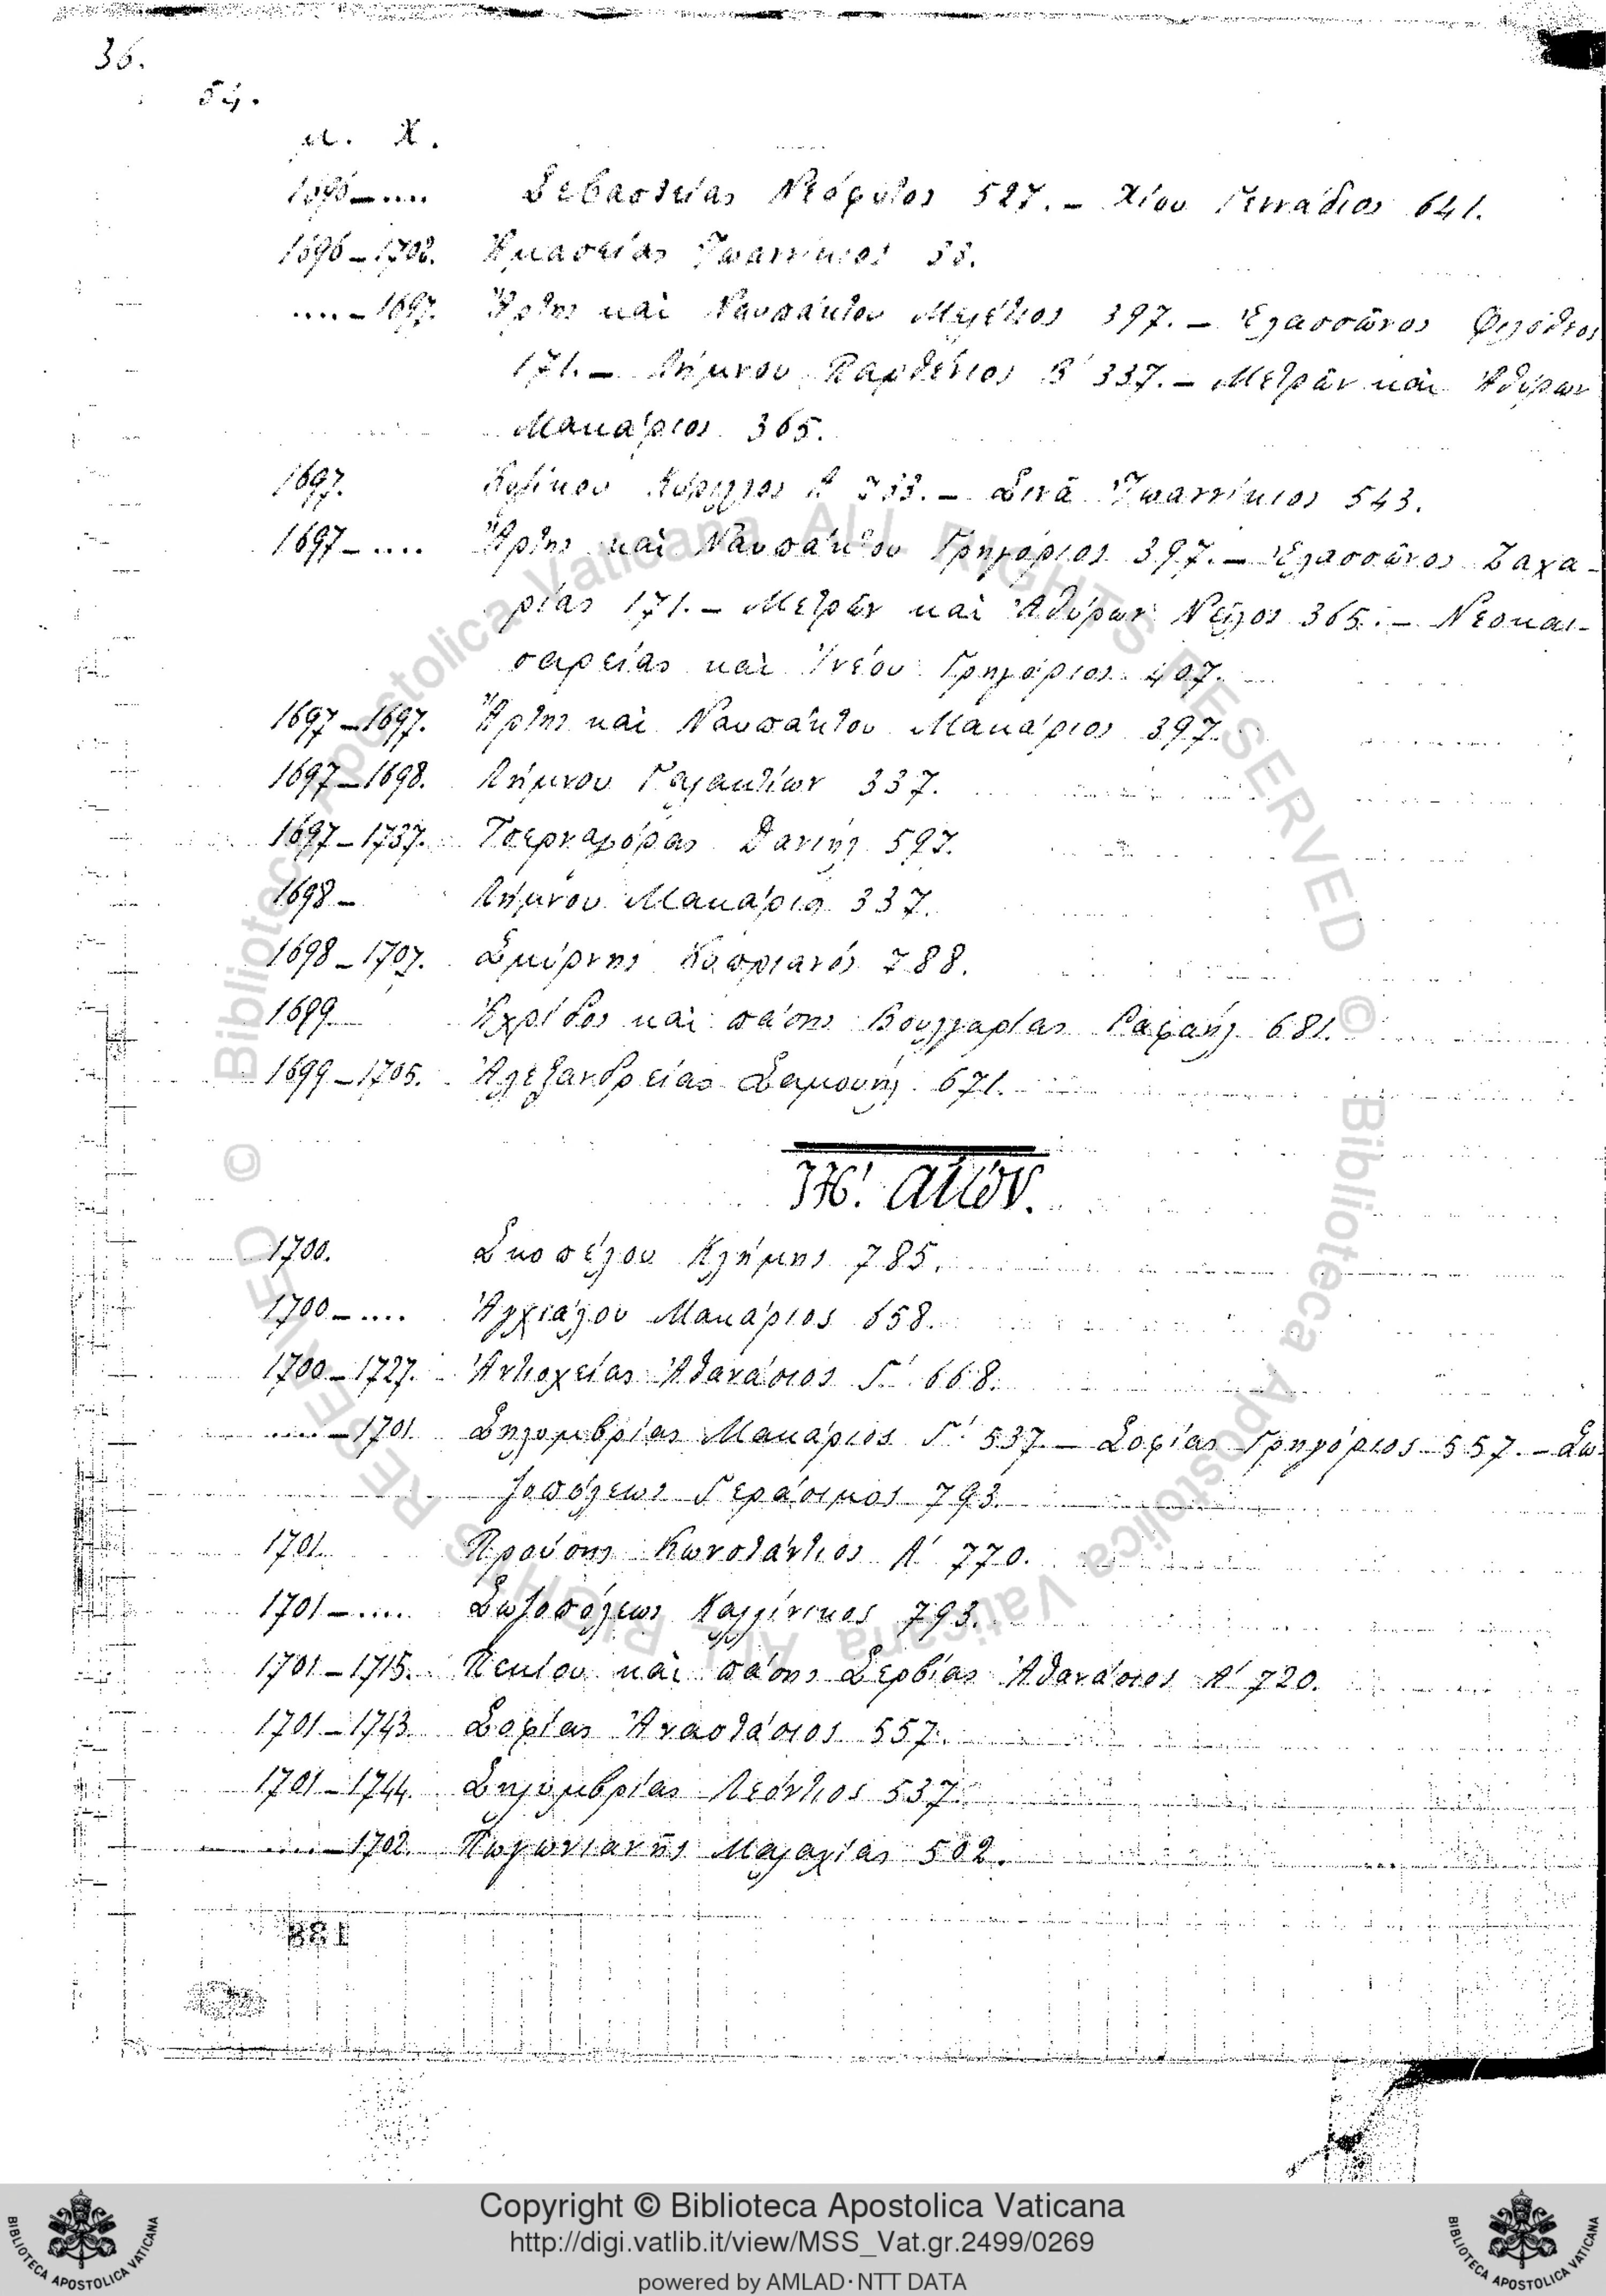 36.
μ. Χ.
1696–.... Σεβαστείας Νεόφυτος 527. – Χίου Γεννάδιος 641.
1696–1702. Ἀμασείας Ἰωαννίκιος
....–1697. Ἄρτης καὶ Ναυπάκτου Μελέτιος 397. – Ἐλασσῶνος Φιλόθεος
171. – Λήμνου Παρθένιος Β΄ 337. – Μετρῶν καὶ Ἀθύρων
Μακάριος 365.
1697. Κυζίκου Κύριλλος Α΄ – Σινᾶ Ἰωαννίκιος 543.
1697–.... Ἄρτης καὶ Ναυπάκτου Γρηγόριος 397. – Ἐλασσῶνος Ζαχα-
ρίας 171. – Μετρῶν καὶ Ἀθύρων Νεῖλος 365. – Νεοκαι-
σαρείας καὶ Ἰνέου Γρηγόριος 407.
1697–1697. Ἄρτης καὶ Ναυπάκτου Μακάριος 397.
1697–1698. Λήμνου Γαλακτίων 337.
1697–1737. Τσερναγόρας Δανιὴλ 597.
1698– Λήμνου Μακάριος 337.
1698–1707. Σμύρνης Κυπριανός 788.
1699. Ἀχρίδος καὶ πάσης Βουλγαρίας Ραφαὴλ 681.
1699–1705. Ἀλεξανδρείας Σαμουὴλ 671.
ΙΗ΄. αἰών.
1700. Σκοπέλου Κλήμης 785.
1700–.... Ἀγχιάλου Μακάριος 658.
1700–1727. Ἀντιοχείας Ἀθανάσιος Γ΄ 668.
....–1701. Σηλυμβρίας Μακάριος Γ΄ 537. – Σοφίας Γρηγόριος 557. – Σω-
ζοπόλεως Γεράσιμος 793.
1701. Προύσης Κωνστάντιος Α΄ 770.
1701–.... Σωζοπόλεως Καλλίνικος 793.
1701–1715. Πεκίου καὶ πάσης Σερβίας Ἀθανάσιος Α΄ 720.
1701–1743. Σοφίας Ἀναστάσιος 557.
1701–1744. Σηλυμβρίας Λεόντιος 537.
....–1702. Πωγωνιανῆς Μαλαχίας 502.
Copyright © Biblioteca Apostolica Vaticana
http://digi.vatlib.it/view/MSS_Vat.gr.2499/0269
powered by AMLAD·NTT DATA